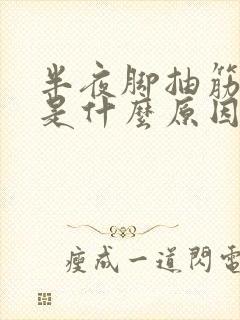 半夜腳抽筋
是什麼原因
瘦成一道閃電